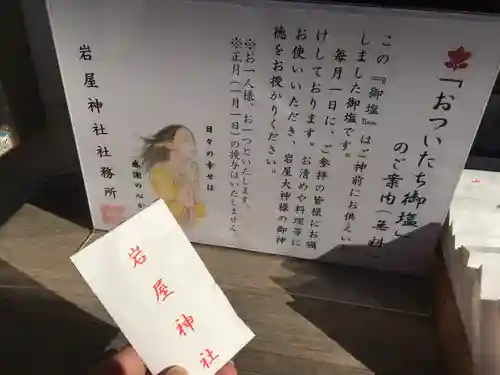 「おついたち御塩」
のご案内(無料)
この『御塩』はご神前にお供えい
しました御塩です。
毎月一日に、ご参拝の皆様にお頒
けしております。お清めや料理等に
お使いいただき、岩屋大神様の御神
徳をお授かりください。
※お一人様、お一つといたします。
※正月(一月一日)の授与はいたしません。
日々の幸せは
感謝の心か
岩屋神社社務所
岩屋神社